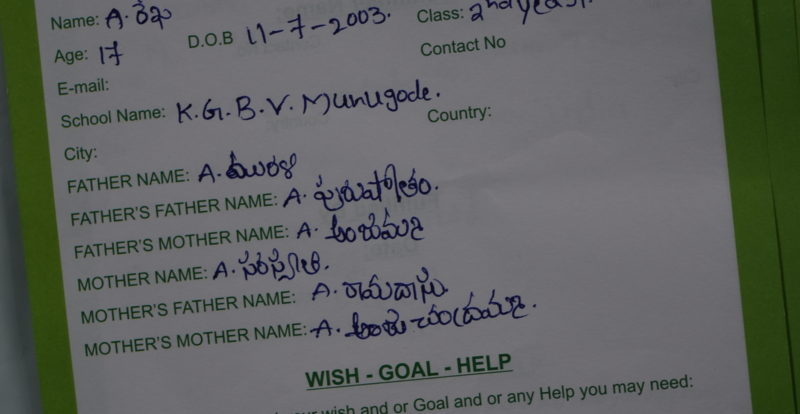 Name: A. రేఖ Class: 2nd year.
Age: 17 D.O.B 11-7-2003. Contact No
E-mail:
School Name: K.G.B.V. Munugode. Country:
City:
FATHER NAME: A. మురళి
FATHER'S FATHER NAME: A. పురుషోత్తం.
FATHER'S MOTHER NAME: A.
MOTHER NAME: A. సరస్వతి.
MOTHER'S FATHER NAME: A. రామదాసు
MOTHER'S MOTHER NAME: A.
WISH - GOAL - HELP
wish and or Goal and or any Help you may need: